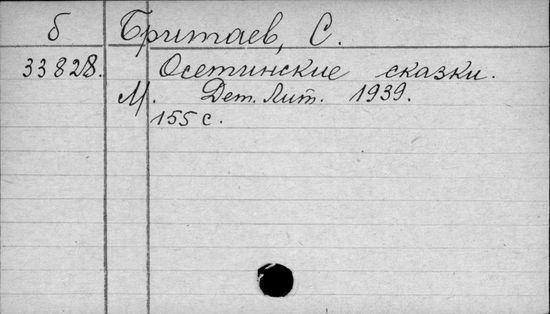 б Бритаев, С.
33828. Осетинские сказки.
М. Дет. Лит. 1939.
155 с.